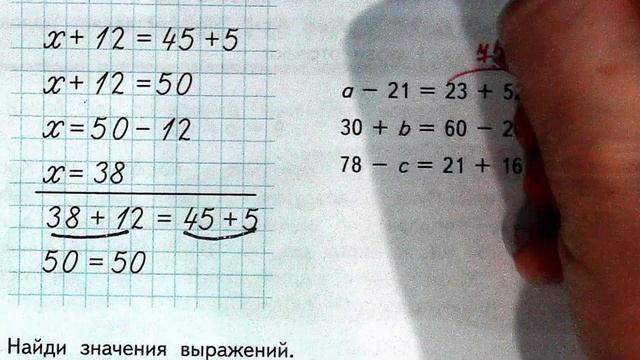 x + 12 = 45 + 5
x + 12 = 50
x = 50 - 12
x = 38
38 + 12 = 45 + 5
50 = 50
75
a − 21 = 23 + 52
30 + b = 60 − 20
78 − c = 21 + 16
Найди значения выражений.